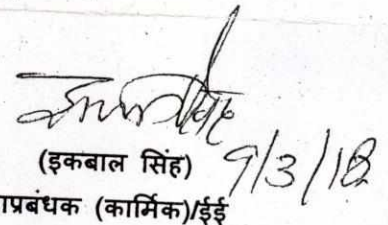 (इकबाल सिंह) 9/3/18
ाप्रबंधक (कार्मिक)/ईई